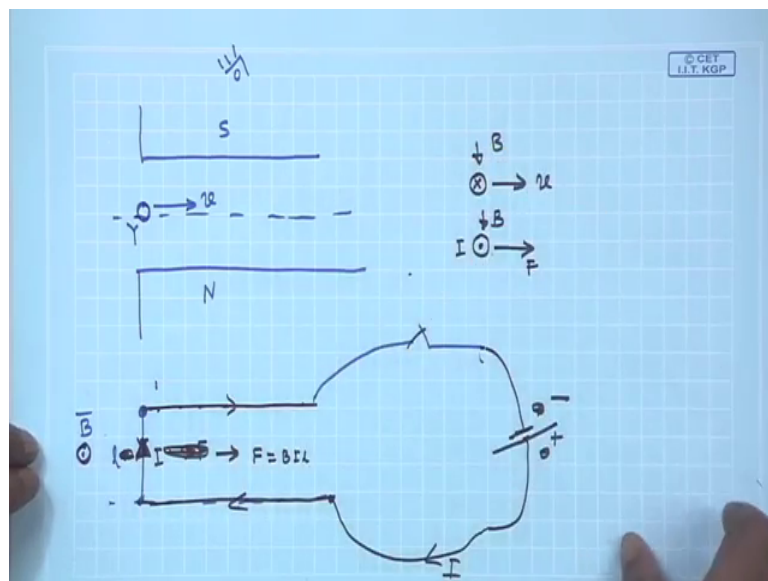 © CET
I.I.T. KGP
S
B
v
v
Y
B
I
F
N
B
l
I
F = BIL
−
+
I